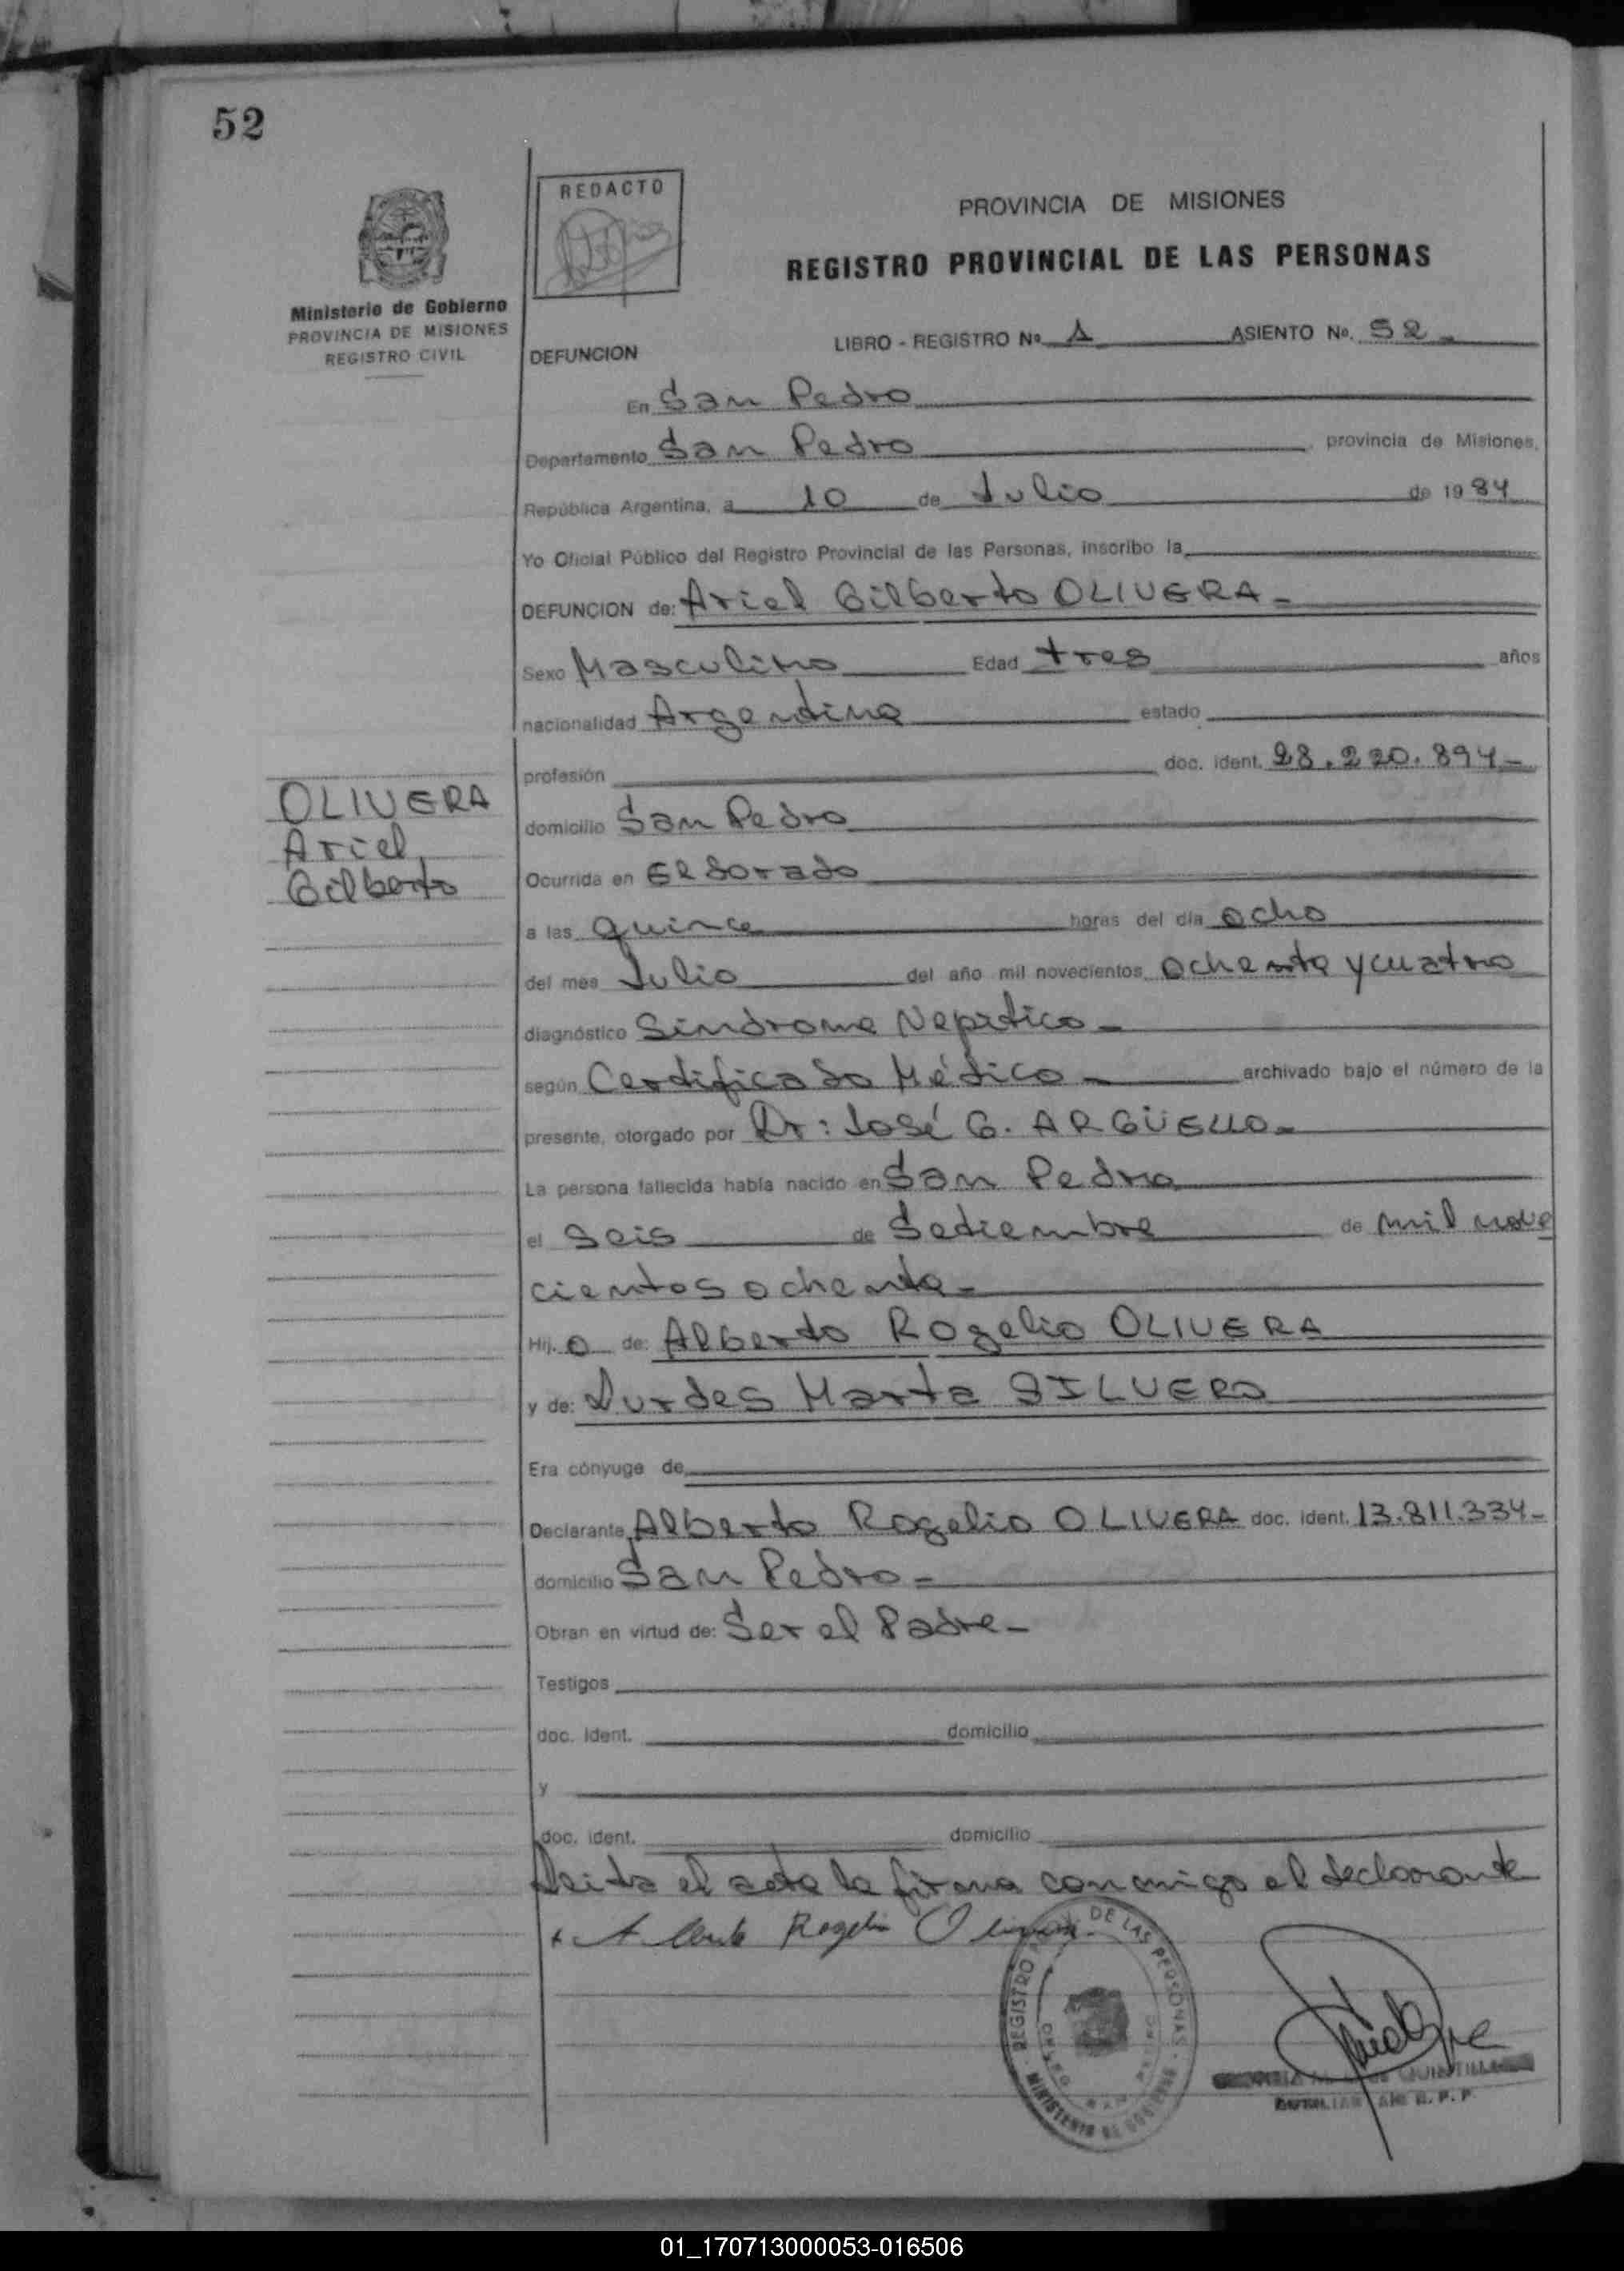 52
REDACTO
PROVINCIA DE MISIONES
REGISTRO PROVINCIAL DE LAS PERSONAS
Ministerio de Gobierno
PROVINCIA DE MISIONES
REGISTRO CIVIL
DEFUNCION
LIBRO - REGISTRO Nº 1 ASIENTO Nº. 52
En San Pedro
Departamento San Pedro, provincia de Misiones,
República Argentina, a 10 de Julio de 1984
Yo Oficial Público del Registro Provincial de las Personas, inscribo la
DEFUNCION de: Ariel Gilberto OLIVERA-
Sexo Masculino Edad tres años
nacionalidad Argentina estado
profesión doc. ident. 28.220.894-
OLIVERA
Ariel
Gilberto
domicilio San Pedro
Ocurrida en Eldorado
a las quince horas del día ocho
del mes Julio del año mil novecientos ochenta y cuatro
diagnóstico Sindrome Nefritico-
según Certificado Médico- archivado bajo el número de la
presente, otorgado por Dr: José G. ARGÜELLO-
La persona fallecida había nacido en San Pedro
el seis de Setiembre de mil nove
cientos ochenta-
Hij o de: Alberto Rogelio OLIVERA
y de: Lurdes Marta SILVERO
Era cónyuge de
Declarante Alberto Rogelio OLIVERA doc. ident. 13.811.334-
domicilio San Pedro-
Obran en virtud de: Ser el Padre-
Testigos
doc. ident. domicilio
y
doc. ident. domicilio
Leida el acta la firma conmigo el declarante
+ Alberto Rogelio Olivera
REGISTRO DE LAS PERSONAS
MINISTERIO DE GOBIERNO
QUINTILLA
AUXILIAR R. P. P.
01_170713000053-016506